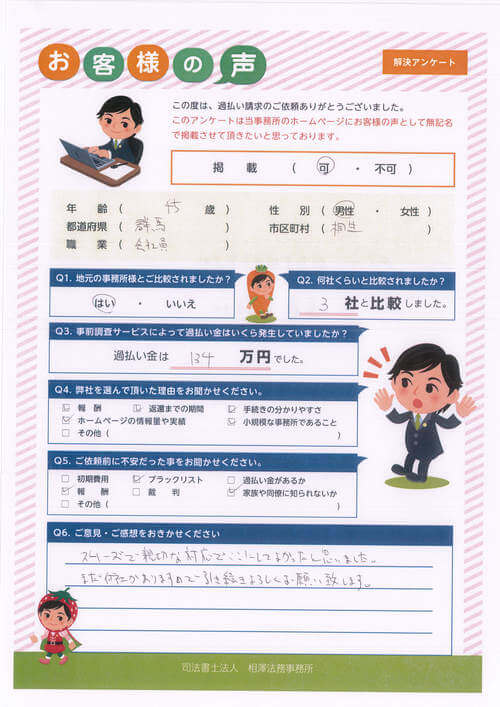 お客様の声
解決アンケート
この度は、過払い請求のご依頼ありがとうございました。
このアンケートは当事務所のホームページにお客様の声として無記名
で掲載させて頂きたいと思っております。
掲 載 ( 可 ・ 不可 )
年 齢 ( 45 歳 ) 性 別 ( 男性 ・ 女性 )
都道府県 ( 群馬 ) 市区町村 ( 桐生 )
職 業 ( 会社員 )
Q1. 地元の事務所様とご比較されましたか?
はい ・ いいえ
Q2. 何社くらいと比較されましたか?
3 社と比較しました。
Q3. 事前調査サービスによって過払い金はいくら発生していましたか?
過払い金は 134 万円でした。
Q4. 弊社を選んで頂いた理由をお聞かせください。
報 酬 返還までの期間 手続きの分かりやすさ
ホームページの情報量や実績 小規模な事務所であること
その他 ( )
Q5. ご依頼前に不安だった事をお聞かせください。
初期費用 ブラックリスト 過払い金があるか
報 酬 裁 判 家族や同僚に知られないか
その他 ( )
Q6. ご意見・ご感想をおきかせください
スムーズで親切な対応でここにしてよかったと思いました。
まだ何社かありますので引き続きよろしくお願い致します。
司法書士法人 相澤法務事務所